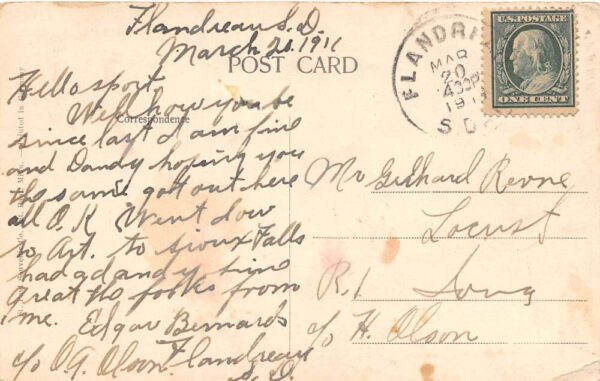 Flandreau S. D.
March 20. 1911
POST CARD
Correspondence
Hello sport
Well how you be
since last I am fine
and Dandy hoping you
the same got out here
all O.K. Went dow
to Art. to Sioux Falls
had a dandy time
great the folks from
me. Edgar Bernards
c/o O.A. Olson Flandreau
S. D.
FLANDR
MAR
20
430P
191
S D
U.S. POSTAGE
ONE CENT
Mr Gerhard Revne
Locust
R. 1 Iowa
c/o H. Olson